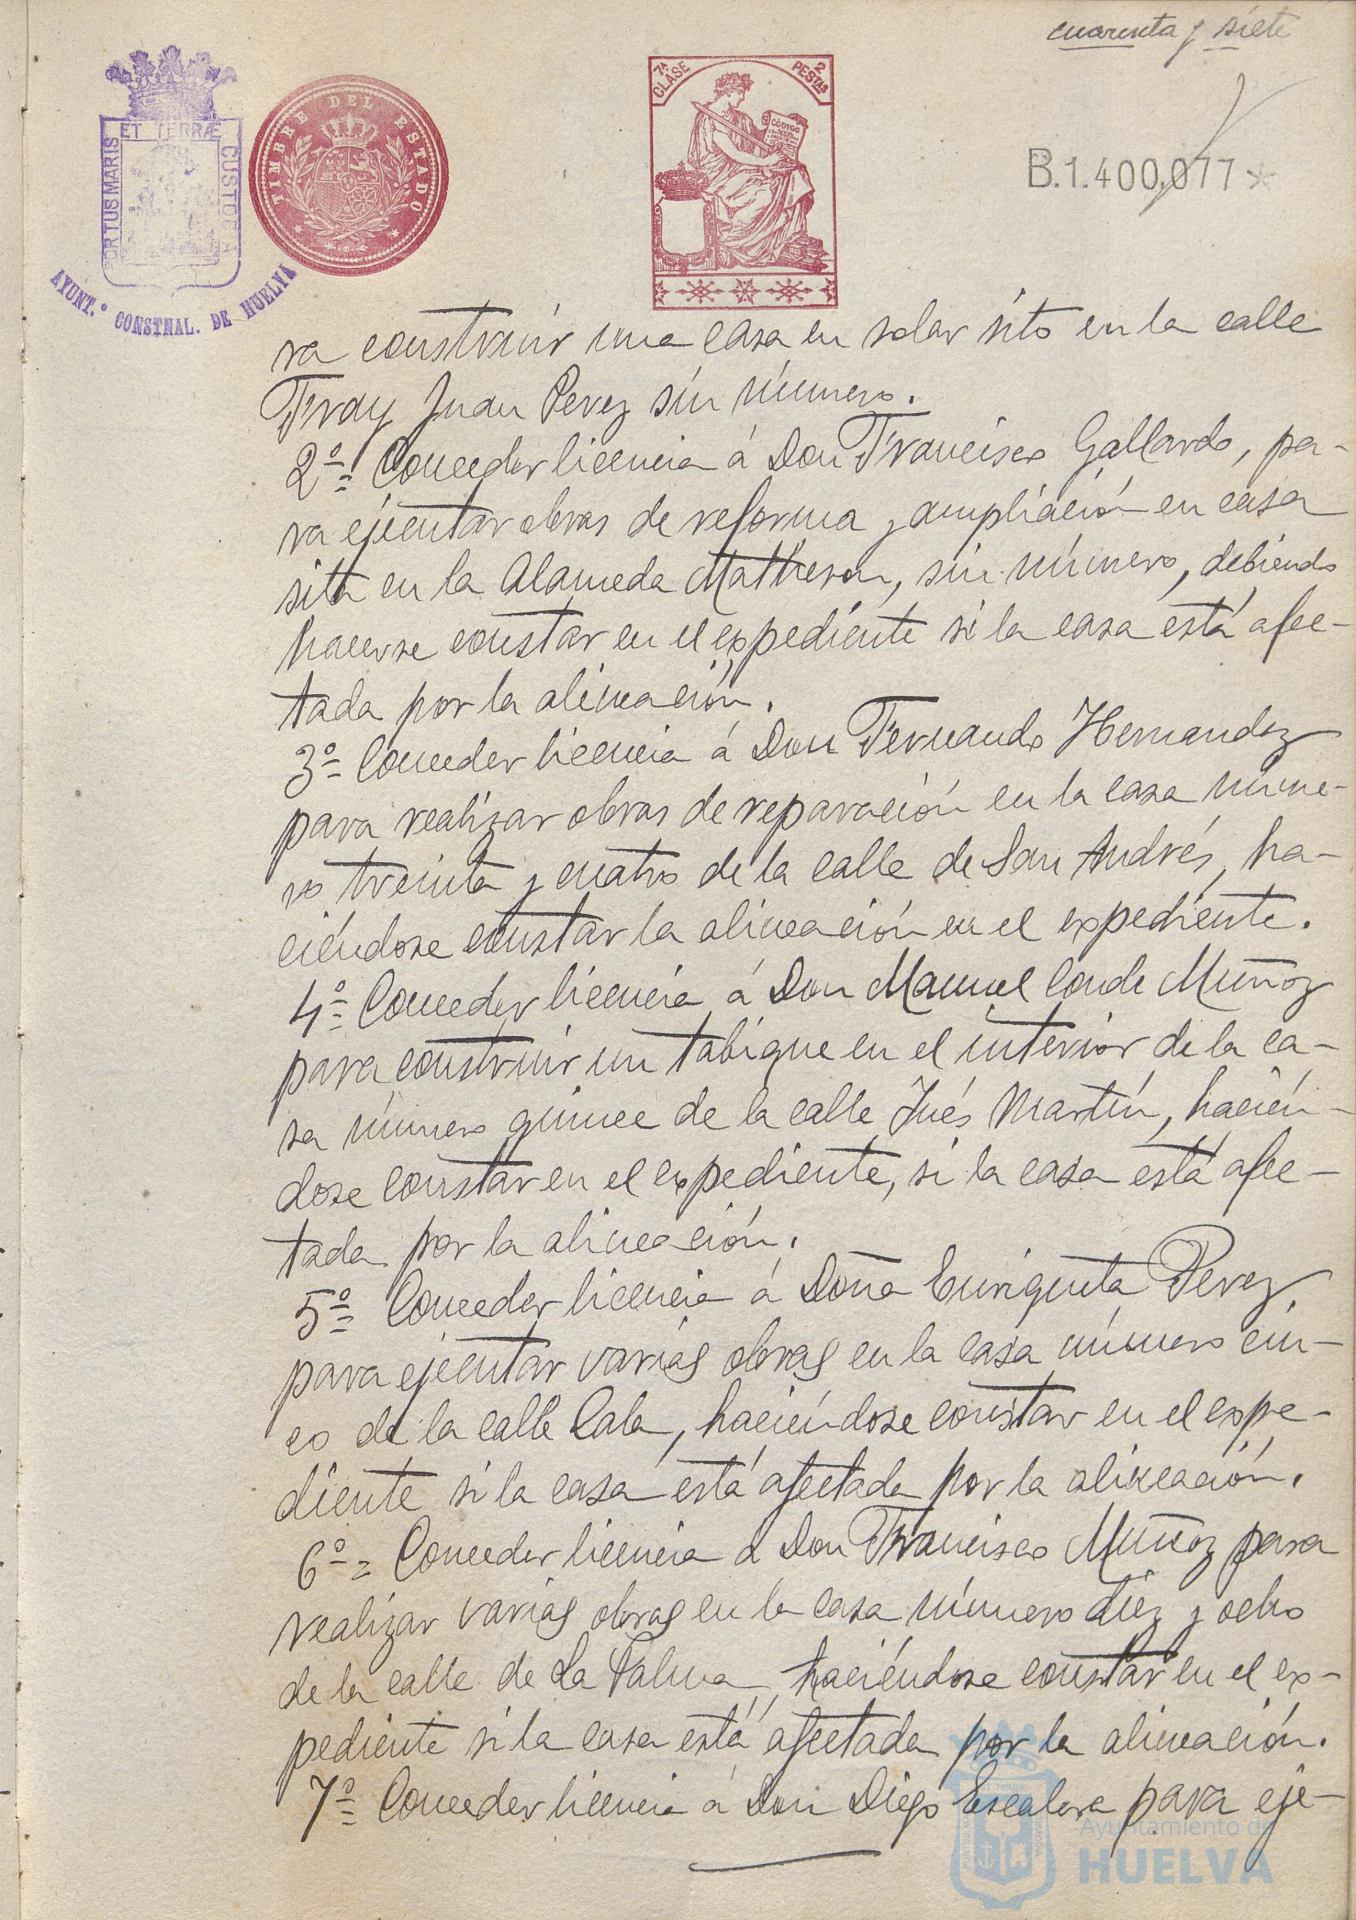 cuarenta y siete
PORTUS MARIS ET TERRÆ CUSTODIA
AYUNT.º CONSTNAL. DE HUELVA
TIMBRE DEL ESTADO
7ª CLASE
2 PESTAS
CÓDIGO
B.1.400,077*
ra construir una casa en solar sito en la calle
Fray Juan Perez sin número.
2º= Conceder licencia á Don Francisco Gallardo, pa-
ra ejecutar obras de reforma y ampliación en casa
sita en la Alameda Matheson, sin número, debiendo
hacerse constar en el expediente si la casa está afec-
tada por la alineación.
3º= Conceder licencia á Don Fernando Hernandez
para realizar obras de reparación en la casa núme-
ro treinta y cuatro de la calle de San Andrés, ha-
ciéndose constar la alineación en el expediente.
4º= Conceder licencia á Don Manuel Conde Muñoz
para construir un tabique en el interior de la ca-
sa número quince de la calle Inés Martín, hacién-
dose constar en el expediente, si la casa está afec-
tada por la alineación.
5º= Conceder licencia á Doña Enriqueta Perez
para ejecutar varias obras en la casa número cin-
co de la calle Cala, haciéndose constar en el expe-
diente si la casa está afectada por la alineación.
6º= Conceder licencia á Don Francisco Muñoz para
realizar varias obras en la casa número diez y ocho
de la calle de La Palma, haciéndose constar en el ex-
pediente si la casa está afectada por la alineación.
7º= Conceder licencia á Don Diego Escalera para eje-
Ayuntamiento de
HUELVA